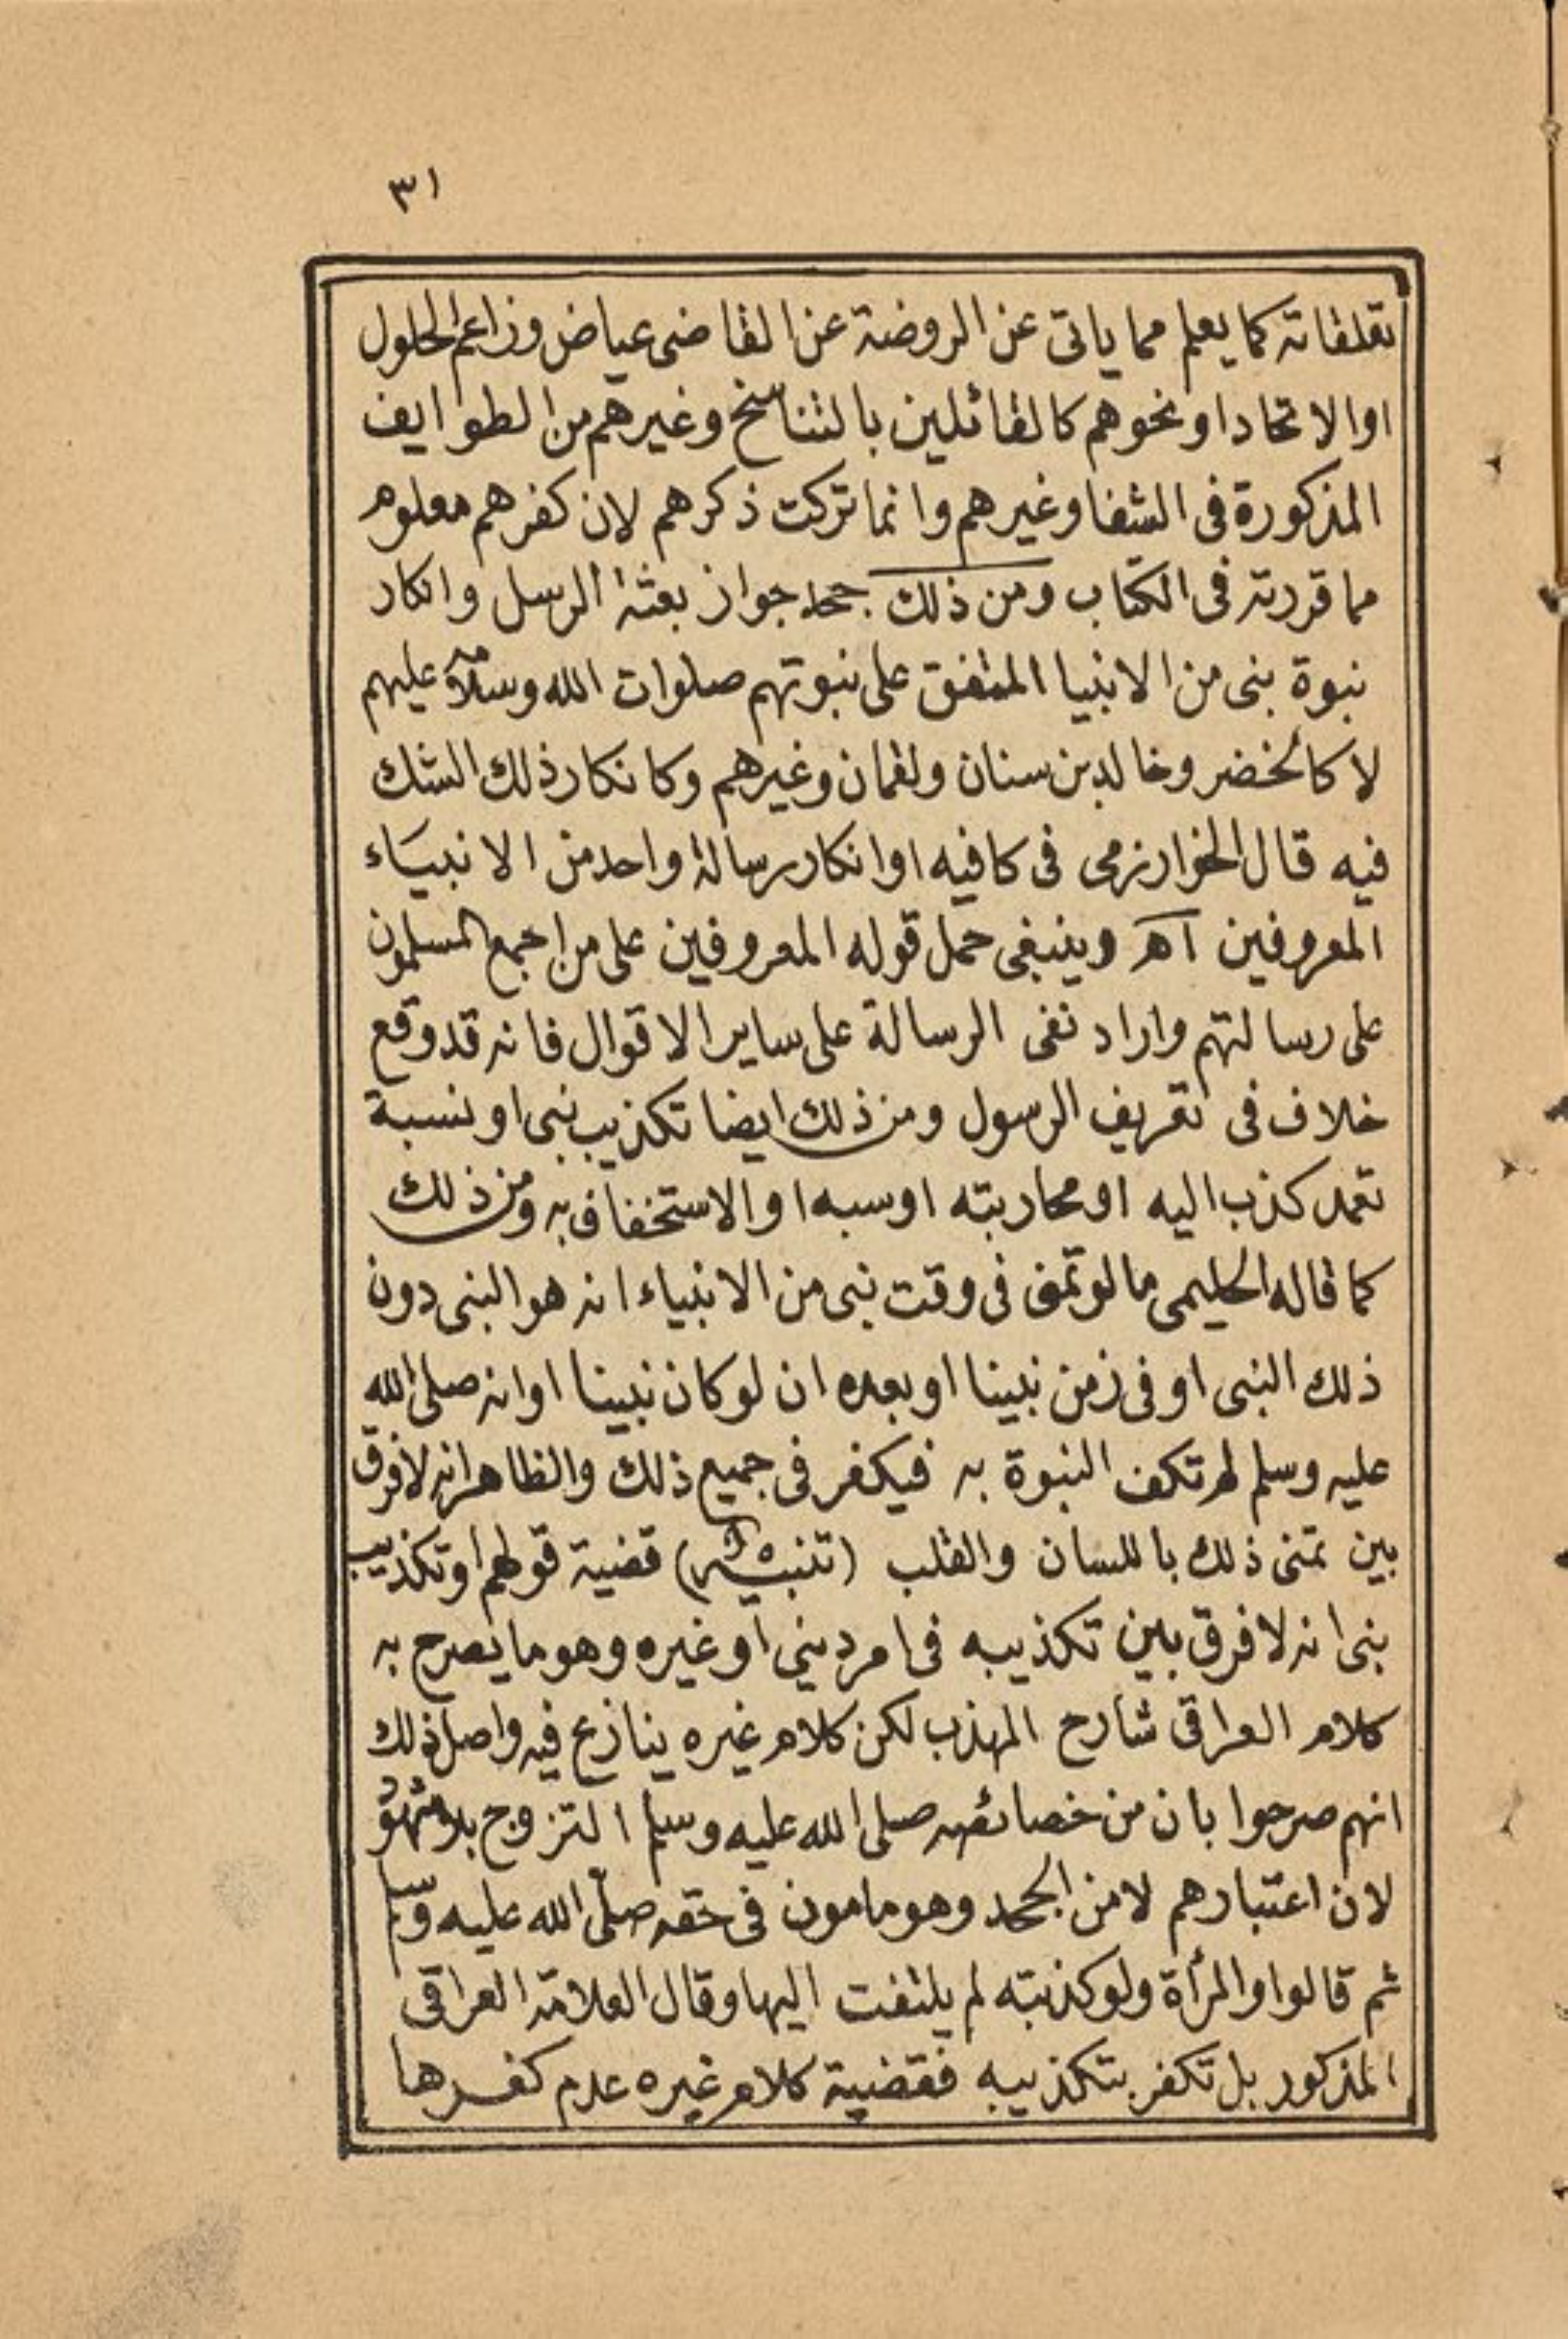 ٣١
تعلقاته كما يعلم مما ياتى عن الروضة عن القاضى عياض وزاعم الحلول
او الاتحاد او نحوهم كالقائلين بالتناسخ وغيرهم من الطوايف
المذكورة فى الشفا وغيرهم وانما تركت ذكرهم لان كفرهم معلوم
مما قررته فى الكتاب ومن ذلك جحد جواز بعثة الرسل وانكار
نبوة نبى من الانبيا المتفق على نبوتهم صلوات الله وسلامه عليهم
لا كالخضر وخالد بن سنان ولقمان وغيرهم وكانكار ذلك الشك
فيه قال الخوارزمى فى كافيه او انكار رسالة واحد من الانبياء
المعروفين اه وينبغى حمل قوله المعروفين على من اجمع المسلمون
على رسالتهم واراد نفى الرسالة على ساير الاقوال فانه قد وقع
خلاف فى تعريف الرسول ومن ذلك ايضا تكذيب نبى او نسبة
تعمد كذب اليه او محاربته او سبه او الاستخفاف به ومن ذلك
كما قاله الحليمى ما لو تمنى فى وقت نبى من الانبياء انه هو النبى دون
ذلك النبى او فى زمن نبينا او بعده ان لو كان نبينا او انه صلى الله
عليه وسلم لم تكن النبوة به فيكفر فى جميع ذلك والظاهر انه لا فرق
بين تمنى ذلك باللسان والقلب (تنبيه) قضية قولهم او تكذيب
نبى انه لا فرق بين تكذيبه فى امر دينى او غيره وهو ما يصرح به
كلام العراقى شارح المهذب لكن كلام غيره ينازع فيه واصل ذلك
انهم صرحوا بان من خصائصه صلى الله عليه وسلم التزوج بلا شهود
لان اعتبارهم لامن الجحد وهو مامون فى حقه صلى الله عليه وسلم
ثم قالوا والمرأة ولو كذبته لم يلتفت اليها وقال العلامة العراقى
المذكور بل تكفر بتكذيبه فقضية كلام غيره عدم كفرها